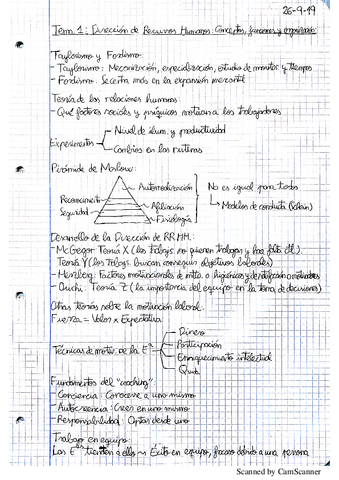 26-9-19
Tema 1: Dirección de Recursos Humanos: Concepto, funciones y organización
Taylorismo y Fordismo
- Taylorismo: Mecanización, especialización, estudio de movtos y tiempos
- Fordismo: Se centra más en la expansión mercantil
Teoría de las relaciones humanas:
- Qué factores sociales y psíquicos motivan a los trabajadores
Experimentos
- Nivel de ilum. y productividad
- Cambios en las rutinas
Pirámide de Maslow:
Autorrealización
Reconocimiento
Afiliación
Seguridad
Fisiología
No es igual para todos
Modelos de conducta (Schein)
Desarrollo de la Dirección de RRHH:
- McGregor: Teoría X (los trabaj. no quieren trabajar y hace falta
Teoría Y (los trabaj. buscan conseguir objetivos laborales)
- Herzberg: Factores motivacionales de mtto. o higiénicos y de
- Ouchi: Teoría Z (la importancia del equipo en la toma de decisiones)
Otras teorías sobre la motivación laboral:
Fuerza = Valor x Expectativa
Técnicas de motiv. de la Eª
- Dinero
- Participación
- Enriquecimiento intelectual
Fundamentos del "coaching":
- Consciencia: Conocerse a uno mismo
- Autocreencia: Creer en uno mismo
- Responsabilidad: Optar desde uno
Trabajo en equipo:
Las Eªˢ tienden a ello → Éxito en equipo, fracaso debido a una persona
Scanned by CamScanner